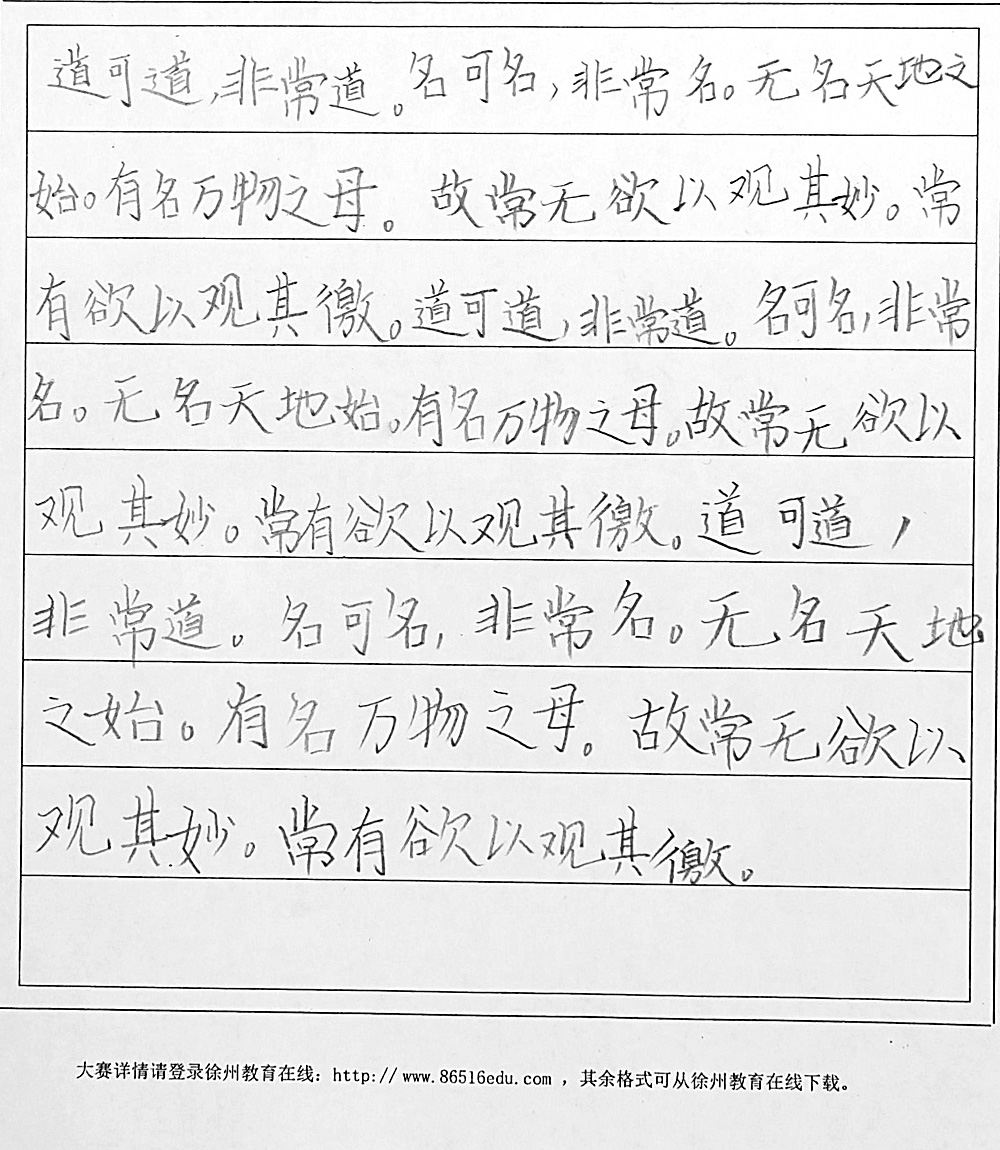 道可道,非常道。名可名,非常名。无名天地之
始。有名万物之母。故常无欲以观其妙。常
有欲以观其徼。道可道,非常道。名可名,非常
名。无名天地始。有名万物之母。故常无欲以
观其妙。常有欲以观其徼。道可道,
非常道。名可名,非常名。无名天地
之始。有名万物之母。故常无欲以
观其妙。常有欲以观其徼。
大赛详情请登录徐州教育在线：http://www.86516edu.com ，其余格式可从徐州教育在线下载。